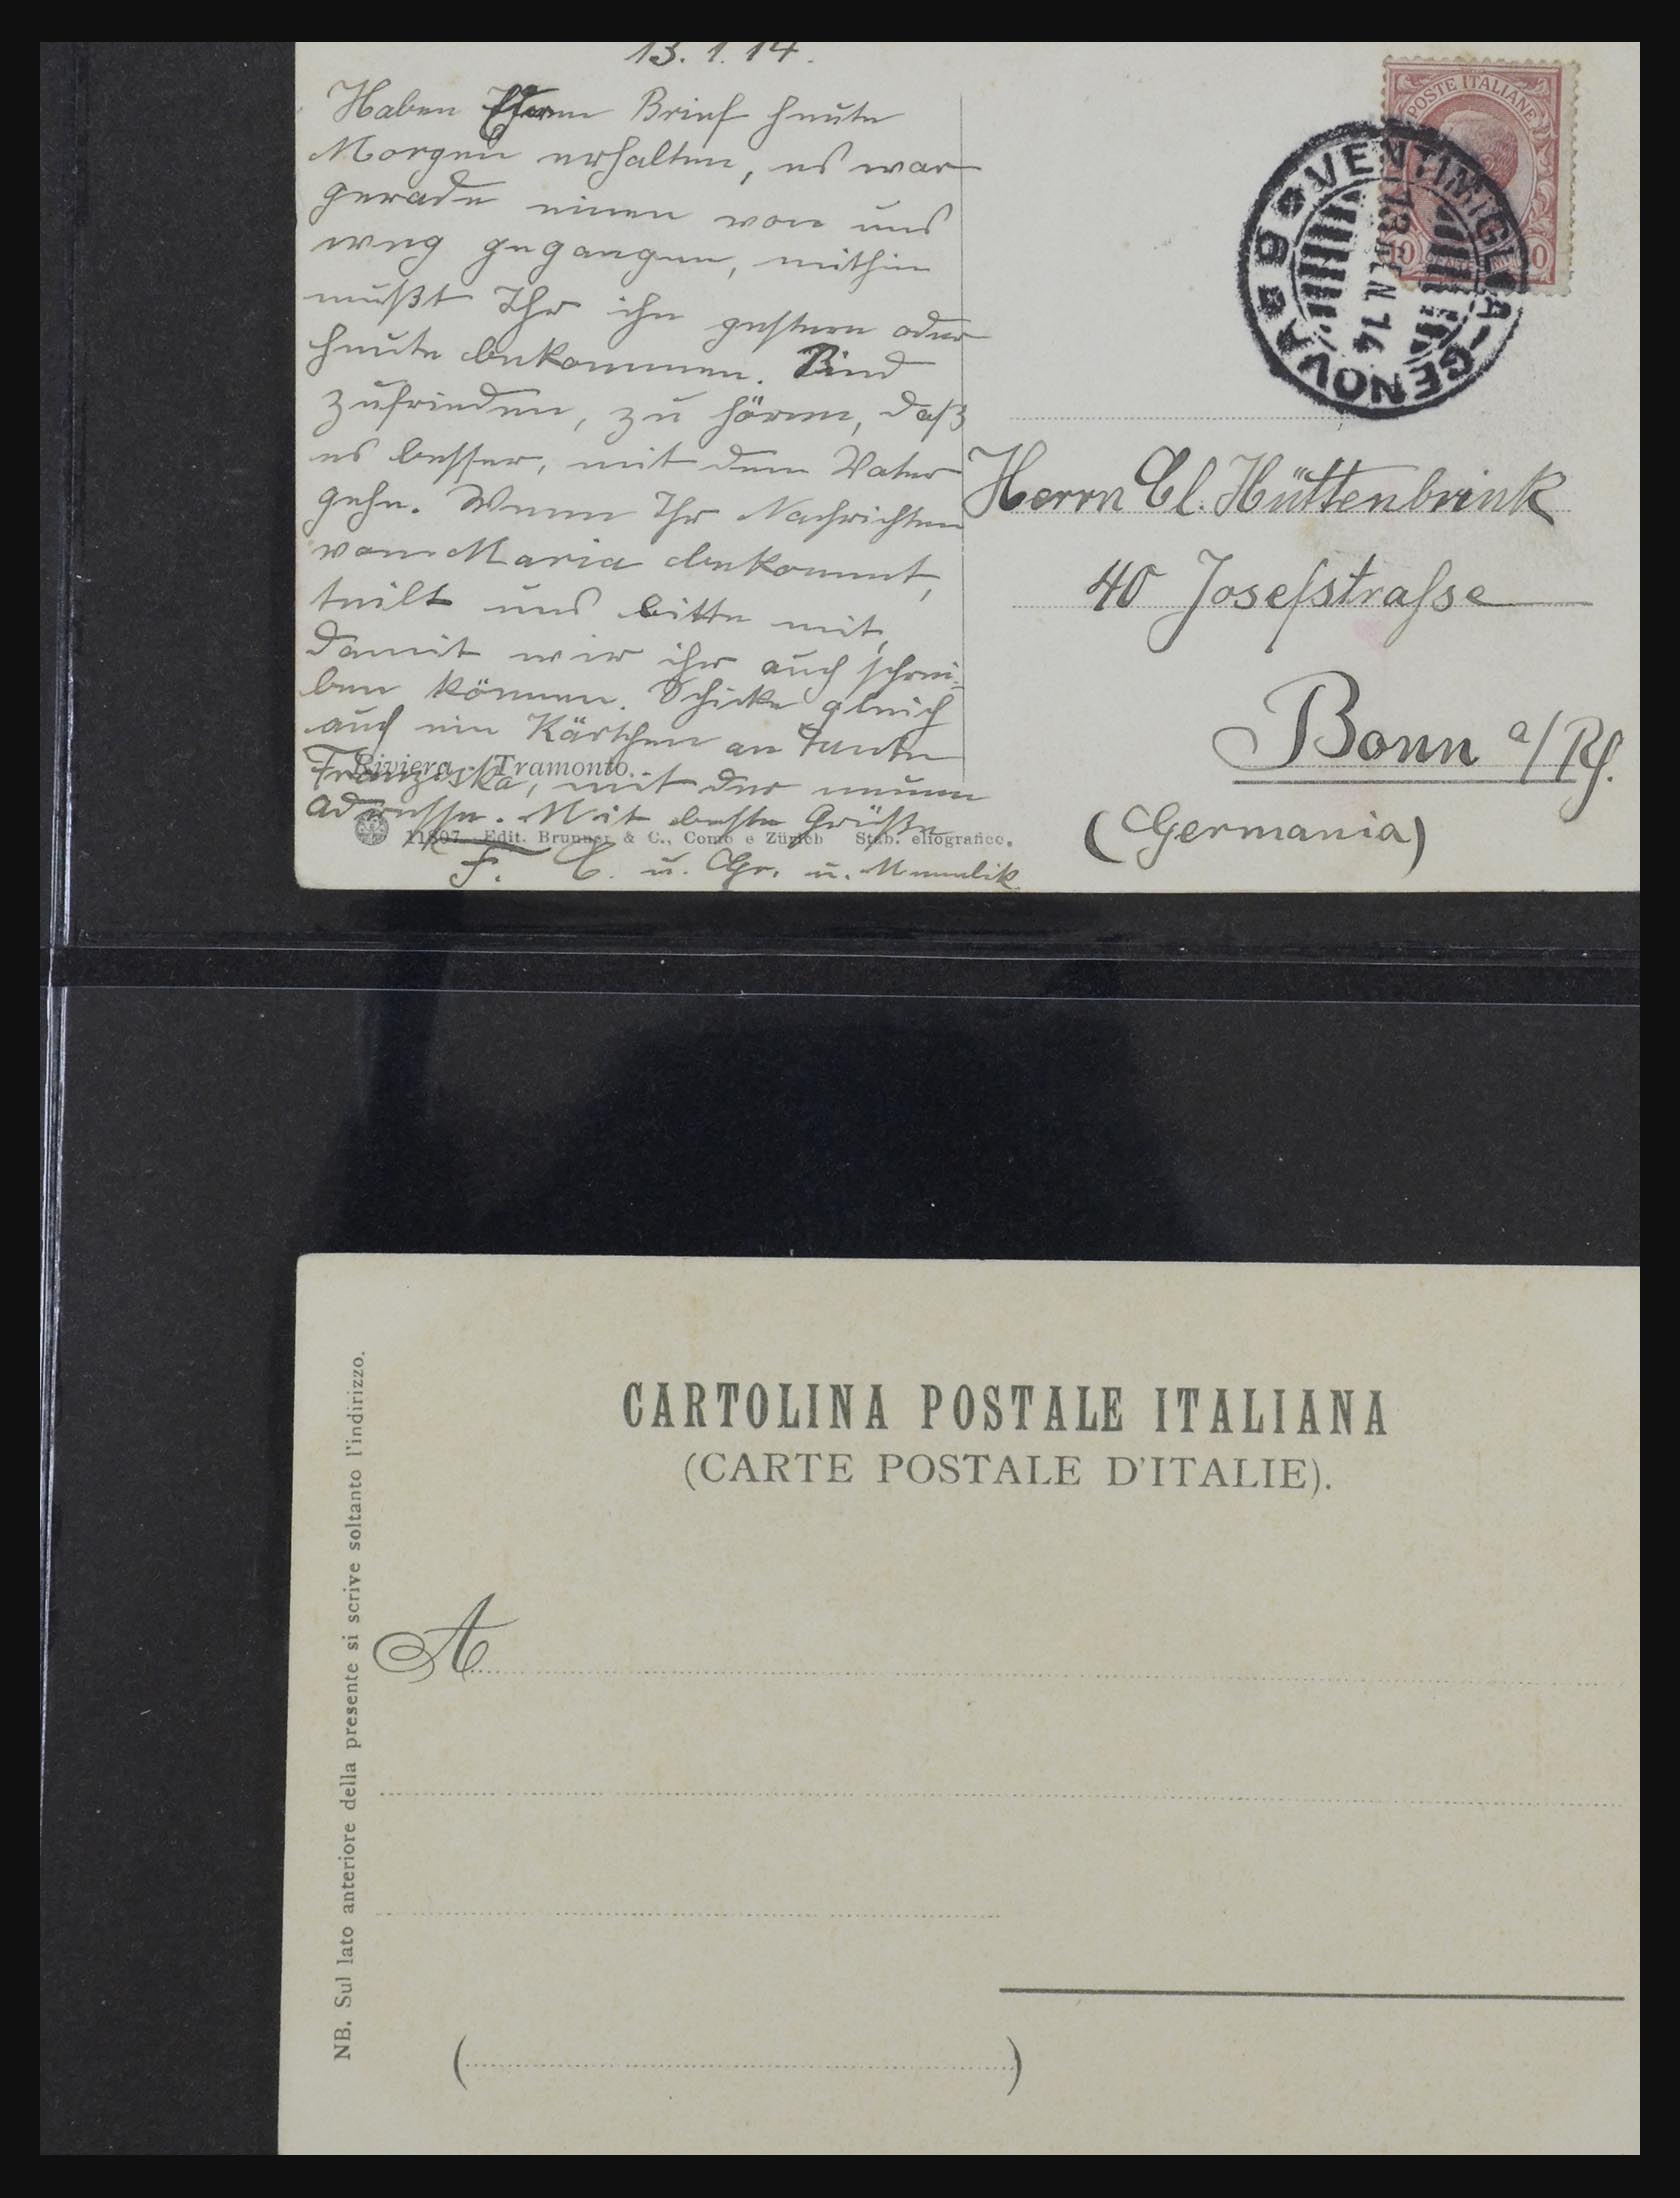 13. 1. 14.
Haben Euren Brief heute
Morgen erhalten, es war
gerade einen von uns
weg gegangen, mithin
müßt Ihr ihn gestern oder
heute bekommen. Sind
zufrieden, zu hören, daß
es besser, mit dem Vater
gehe. Wenn Ihr Nachrichten
von Maria bekommt,
teilt uns bitte mit,
damit wir ihr auch schrei-
ben können. Schicke gleich
auch ein Kärtchen an Tante
Franziska, mit der neuen
Adresse. Mit beste Grüße
F. C. u. Gr. u.
Riviera - Tramonto.
11807 Edit. Brunner & C., Como e Zürich Stab. eliografico.
POSTE ITALIANE
10 10
VENTIMIGLIA-GENOVA 9
13 GEN 14
Herrn Cl. Hüttenbrink
40 Josefstrasse
Bonn a/Rh.
(Germania)
CARTOLINA POSTALE ITALIANA
(CARTE POSTALE D'ITALIE).
NB. Sul lato anteriore della presente si scrive soltanto l'indirizzo.
A
( )